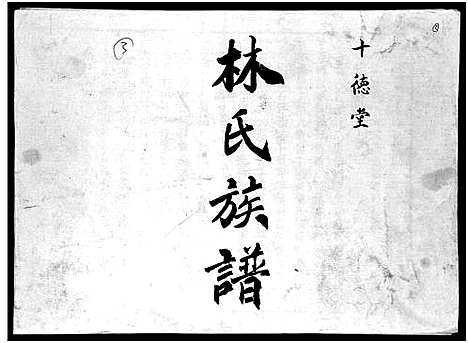 十德堂
林氏族譜
3